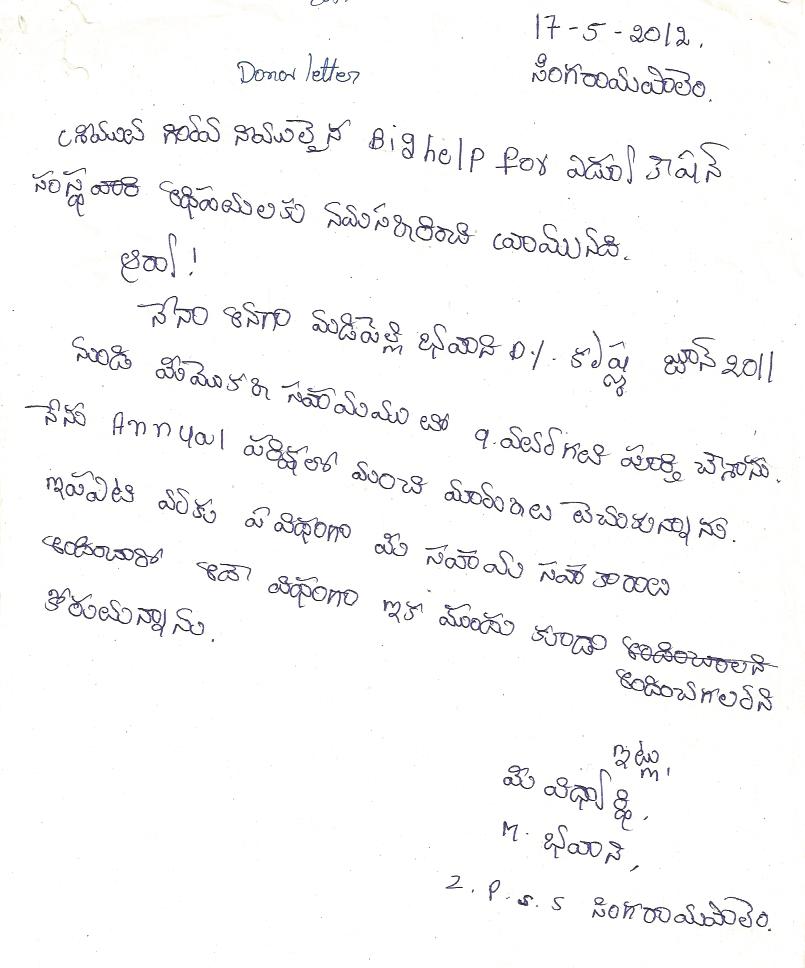 17-5-2012.
Donor letter
సింగరాయపాలెం.
గౌరవ Big help for ఎడ్యుకాషన్
సంస్థ వారి కు
ఆర్యా!
నేను అనగా మడిపెల్లి భవాని D/. కృష్ణ జూన్ 2011
నుండి మీయొక్క సహాయము తో 9.వతరగతి పూర్తి చేశాను.
నేను Annual పరీక్షలో మంచి మార్కులు తెచుకున్నాను.
ఇపపటి వరకు ఏ విధంగా మీ సహాయ సహకారాలు
అందించారో అదే విధంగా ఇక ముందు కూడా అందించాలని
అందించగలరని
కోరుచున్నాను.
ఇట్లు,
మీ విధ్యార్థి,
M. భవాని,
Z.P.S.S సింగరాయపాలెం.